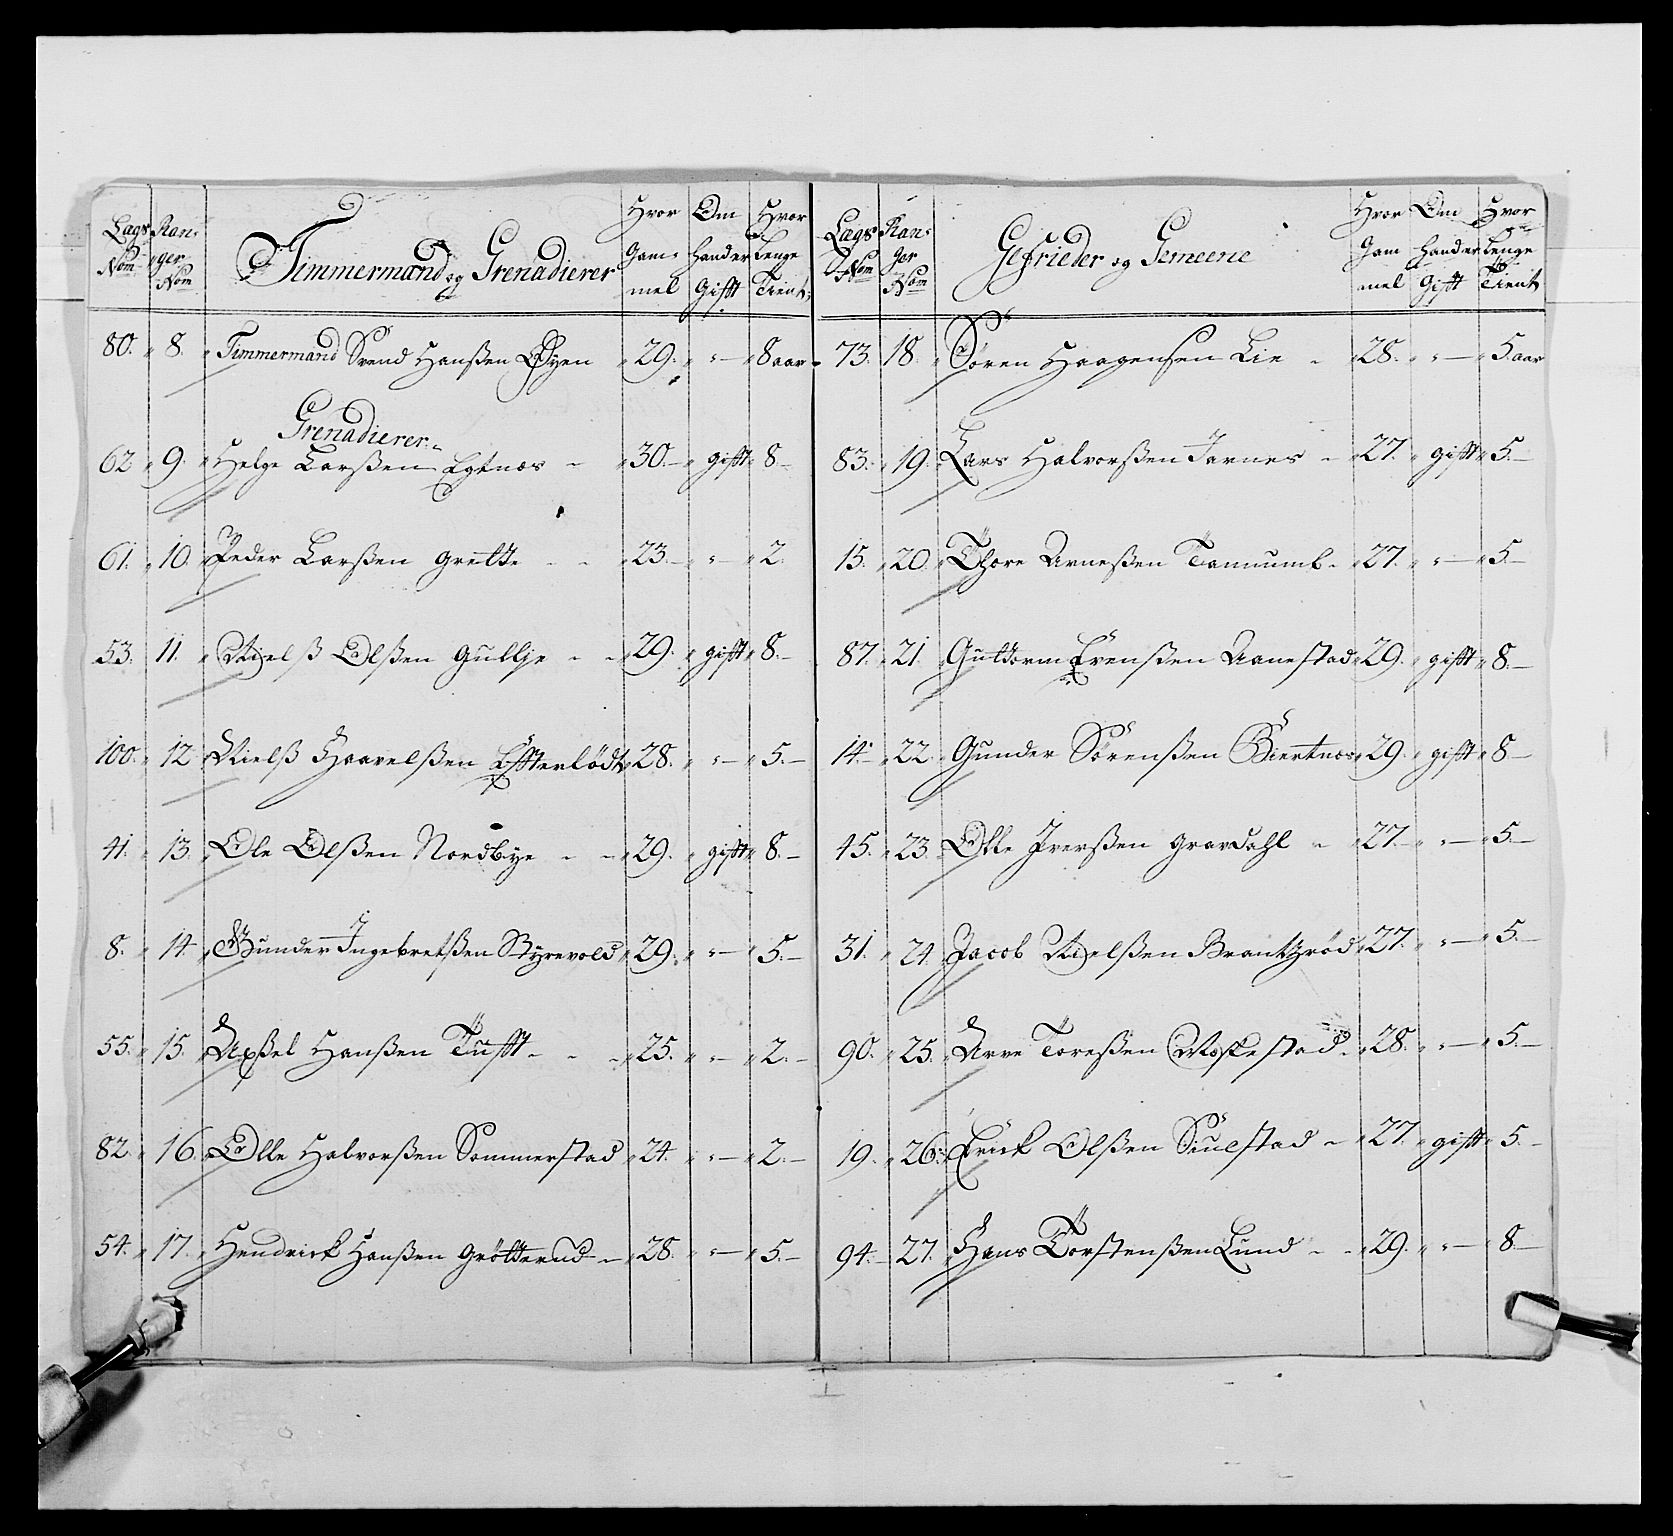 Lags Nom Ran: ger Nom Timmermand og Grenadierer Hvor Gam: mel Om hand er Gifft Hvor Lenge Tient:
80. 8. Timmermand Svend Hanßen Øyen 29. " — 8 aar
Grenadierer.
62 9. Helge Larßen Egtnæs - 30. gifft 8.
61. 10. Peder Larßen Grette - - 23. " — 2.
53. 11. Nielß Olßen Gullje - - 29. gifft 8.
100. 12 Nielß Haavelßen Effterlödt 28. " — 5.
41. 13. Ole Olßen Nordbye - - 29. gifft 8.
8. 14. Gunder Ingebretßen Styrevold 29. " — 5.
55. 15. Axßel Hanßen Tufft - - 25. " — 2.
82. 16. Olle Halvorßen Sommerstad 24. " — 2.
54. 17. Hendrick Hanßen Grötterud 28. " — 5.
Lags Nom Ran: ger Nom Gefrieder og Gemeene Hvor Gam mel Om hand er Gifft Hvor Lenge Tient
73. 18. Sören Haagensen Lie - 28. " — 5. aar
83. 19. Lars Halvorßen Farnes - 27. gifft 5.
15. 20. Thore Arneßen 27. " — 5.
87. 21. Guttorm Evenßen Aanestad 29. gifft 8.
14. 22. Gunder Sörenßen Giertnæs 29. gifft 8
45. 23. Olle Iverßen Gravdahl - 27. " — 5.
31. 24. Jacob Nielßen Brantzröd 27. " — 5.
90. 25. Arve Toreßen Moskestad 28. " — 5.
19. 26. Erick Olßen Siulstad - 27. gifft 5.
94. 27. Hans Torstenßen Lund - - 29. " — 8.